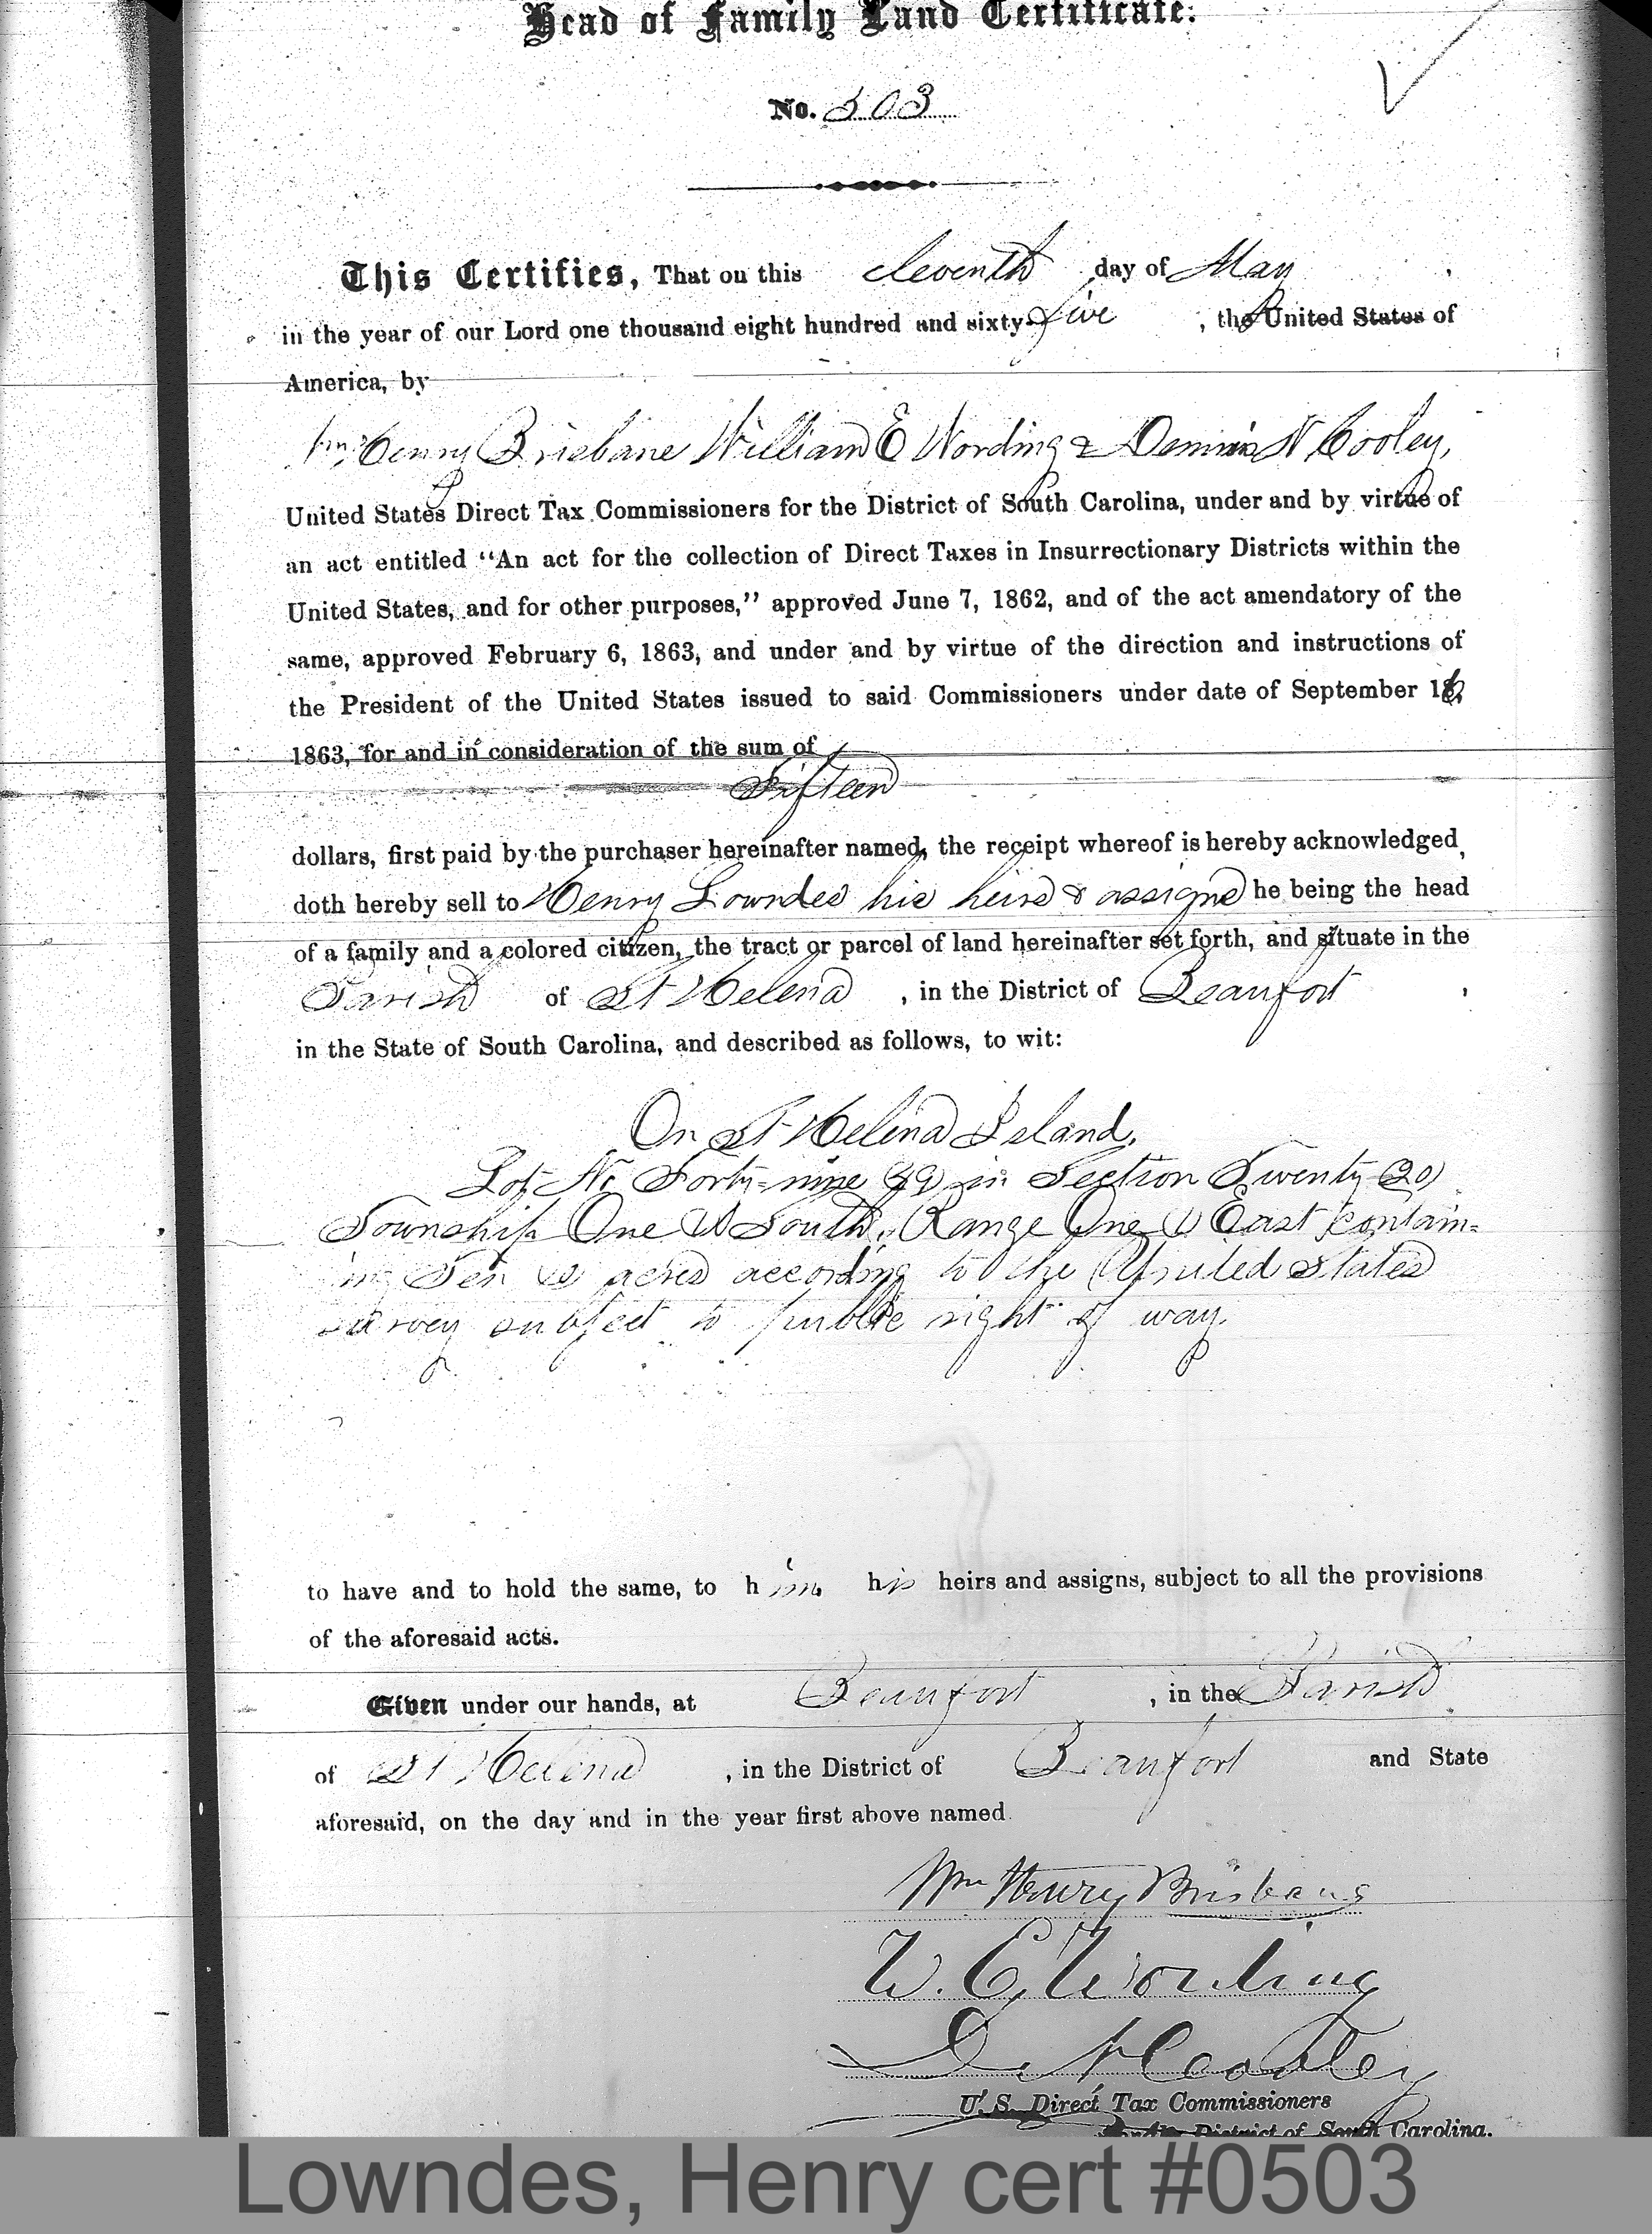 Head of Family Land Certificate:
No. 503
This Certifies, That on this eleventh day of May
in the year of our Lord one thousand eight hundred and sixty-five, the United States of
America, by
Wm Henry Brisbane William E Wording & Dennis N Cooley,
United States Direct Tax Commissioners for the District of South Carolina, under and by virtue of
an act entitled "An act for the collection of Direct Taxes in Insurrectionary Districts within the
United States, and for other purposes," approved June 7, 1862, and of the act amendatory of the
same, approved February 6, 1863, and under and by virtue of the direction and instructions of
the President of the United States issued to said Commissioners under date of September 16,
1863, for and in consideration of the sum of
Fifteen
dollars, first paid by the purchaser hereinafter named, the receipt whereof is hereby acknowledged,
doth hereby sell to Henry Lowndes his heirs & assigns he being the head
of a family and a colored citizen, the tract or parcel of land hereinafter set forth, and situate in the
Parish of St Helena, in the District of Beaufort,
in the State of South Carolina, and described as follows, to wit:
On St Helena Island,
Lot No Forty-nine (49) in Section Twenty (20)
Township One (1) South, Range One (1) East contain-
ing Ten (10) acres according to the United States
survey subject to public right of way.
to have and to hold the same, to him his heirs and assigns, subject to all the provisions
of the aforesaid acts.
Given under our hands, at Beaufort, in the Parish
of St Helena, in the District of Beaufort and State
aforesaid, on the day and in the year first above named.
Wm Henry Brisbane
W. E. Wording
D. N. Cooley
U. S. Direct Tax Commissioners
for the District of South Carolina.
Lowndes, Henry cert #0503